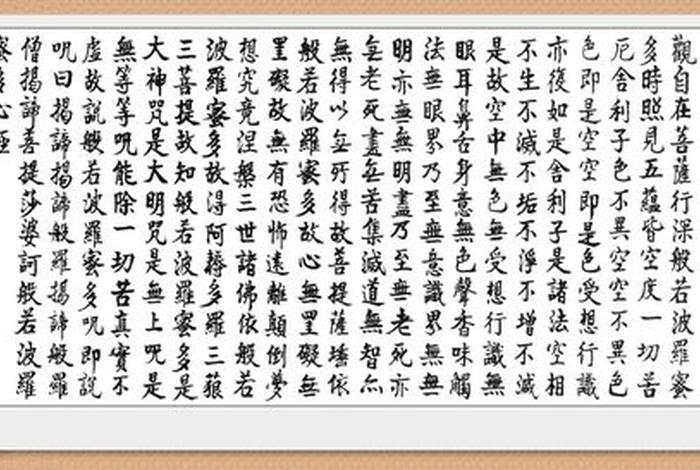 觀自在菩薩行深般若波羅蜜
多時照見五蘊皆空度一切苦
厄舍利子色不異空空不異色
色即是空空即是色受想行識
亦復如是舍利子是諸法空相
不生不滅不垢不淨不增不減
是故空中無色無受想行識無
眼耳鼻舌身意無色聲香味觸
法無眼界乃至無意識界無無
明亦無無明盡乃至無老死亦
無老死盡無苦集滅道無智亦
無得以無所得故菩提薩埵依
般若波羅蜜多故心無罣礙無
罣礙故無有恐怖遠離顛倒夢
想究竟涅槃三世諸佛依般若
波羅蜜多故得阿耨多羅三藐
三菩提故知般若波羅蜜多是
大神咒是大明咒是無上呪是
無等等呪能除一切苦真實不
虛故說般若波羅蜜多呪即說
呪曰揭諦揭諦般羅揭諦般羅
僧揭諦菩提莎婆訶般若波羅
蜜多心經